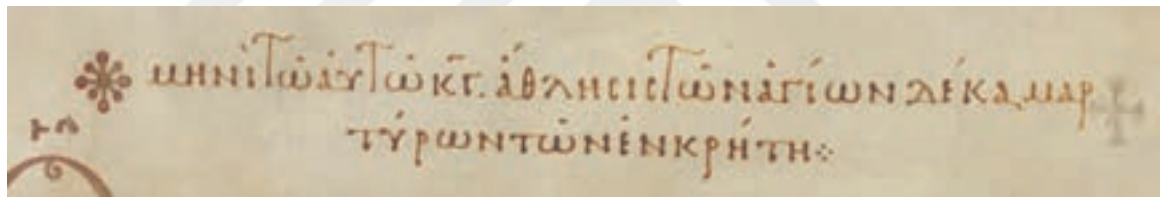 μηνὶ τῶ αὐτῶ κγ. ἄθλησις τῶν ἁγίων δέκα μαρ
τύρων τῶν ἐν κρήτη